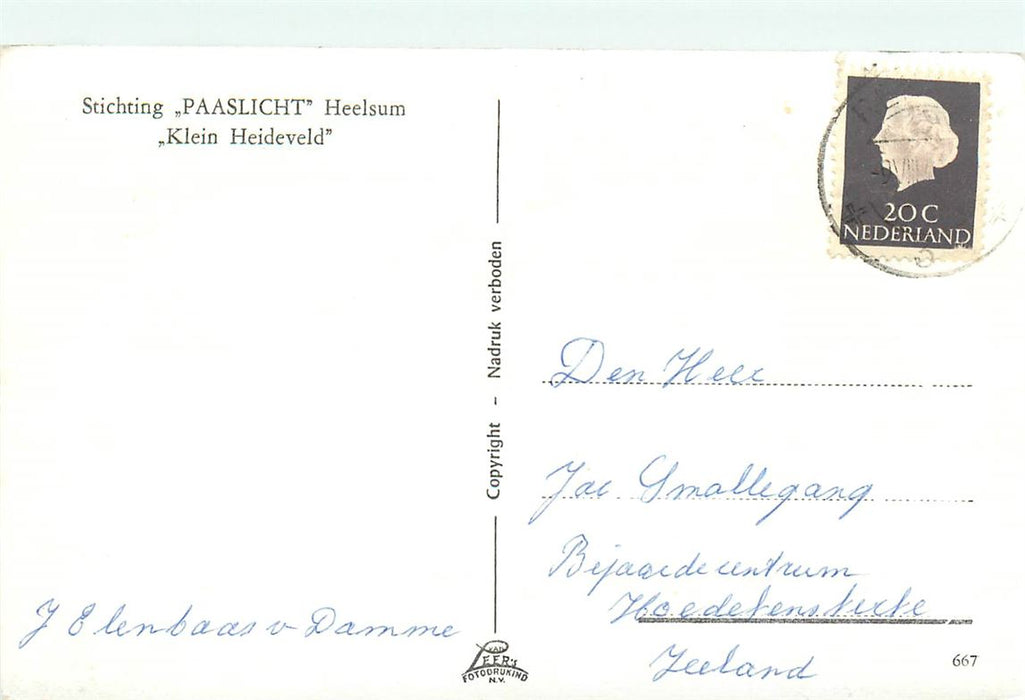 Stichting „PAASLICHT” Heelsum
„Klein Heideveld”
20 C
NEDERLAND
Copyright - Nadruk verboden
Den Heer
Jac Smallegang
Bejaardecentrum
Hoedekenskerke
Zeeland
J Elenbaas v Damme
VAN LEER'S
FOTODRUKIND
N.V.
667